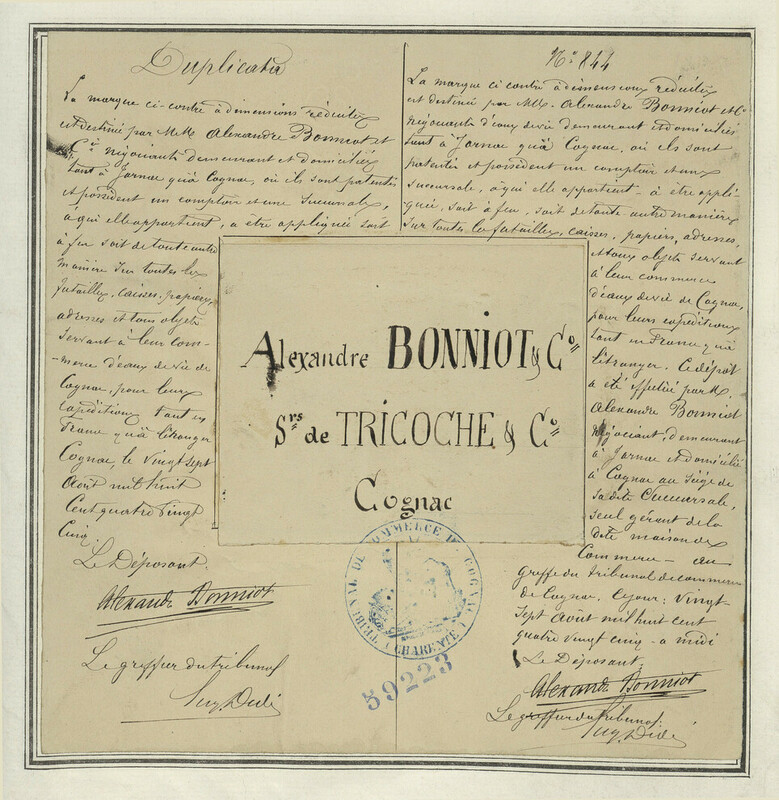 Duplicata
La marque ci-contre à dimensions réduites
est destinée par M.M. Alexandre Bonniot et
Cie négociants demeurant et domiciliés
tant à Jarnac qu'à Cognac, où ils sont patentés
et possèdent un comptoir et une succursale,
à qui elle appartient, a être appliquée soit
à feu soit de toute autre
manière sur toutes les
futailles, caisses, papiers,
adresses et tous objets
servant à leur com-
merce d'eaux de vie de
Cognac, pour leurs
expéditions tant en
France qu'à l'étranger
Cognac, le vingt sept
Août mil huit
Cent quatre vingt
Cinq.
Le Déposant.
Alexandre Bonniot
Le greffier du tribunal
No 844
La marque ci contre à dimensions réduites
est destinée par M.M. Alexandre Bonniot et Cie
négociants d'eaux de vie demeurant et domiciliés
tant à Jarnac qu'à Cognac, où ils sont
patentés et possèdent un comptoir et une
succursale, à qui elle appartient - à être appli-
quée, soit à feu, soit de toute autre manière
sur toutes les futailles, caisses, papiers, adresses,
et tous objets servant
à leur commerce
d'eaux de vie de Cognac,
pour leurs expéditions
tant en France qu'à
l'étranger. Ce dépôt
a été effectué par M.
Alexandre Bonniot
négociant, demeurant
à Jarnac et domicilié
à Cognac au siège de
sa dite succursale,
seul gérant de la
dite maison de
Commerce - au
greffe du tribunal de commerce
de Cognac. Ce jour: vingt
sept Août mil huit cent
quatre vingt cinq - a midi
Le Déposant.
Alexandre Bonniot
Le greffier du tribunal
Alexandre BONNIOT & Co
Srs de TRICOCHE & Co
Cognac
TRIBUNAL DE COMMERCE DE COGNAC
CHARENTE
59223